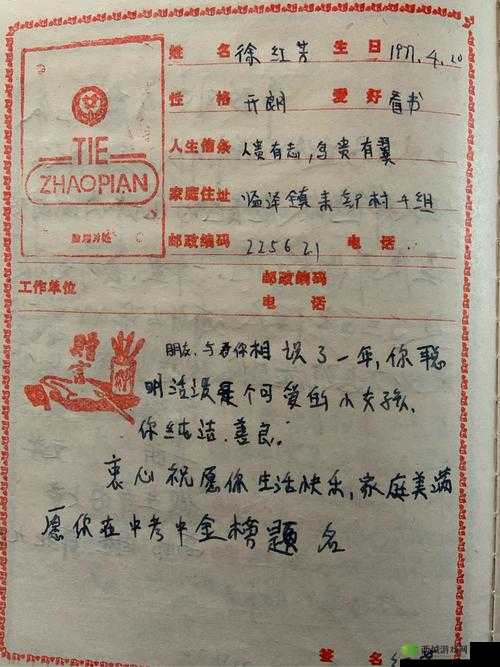 姓 名 徐红芳 生 日 1971.4.20
TIE
ZHAOPIAN
性 格 开朗 爱 好 看书
人生信条 人贵有志,鸟贵有翼
家庭住址 临泽镇 村十组
邮政编码 225621 电 话
工作单位 邮政编码
电 话
赠言
朋友,与你相识了一年,你聪
明活泼是个可爱的小女孩.
你纯洁.善良.
衷心祝愿你生活快乐,家庭美满
愿你在中考中金榜题名
签 名
西城游戏网